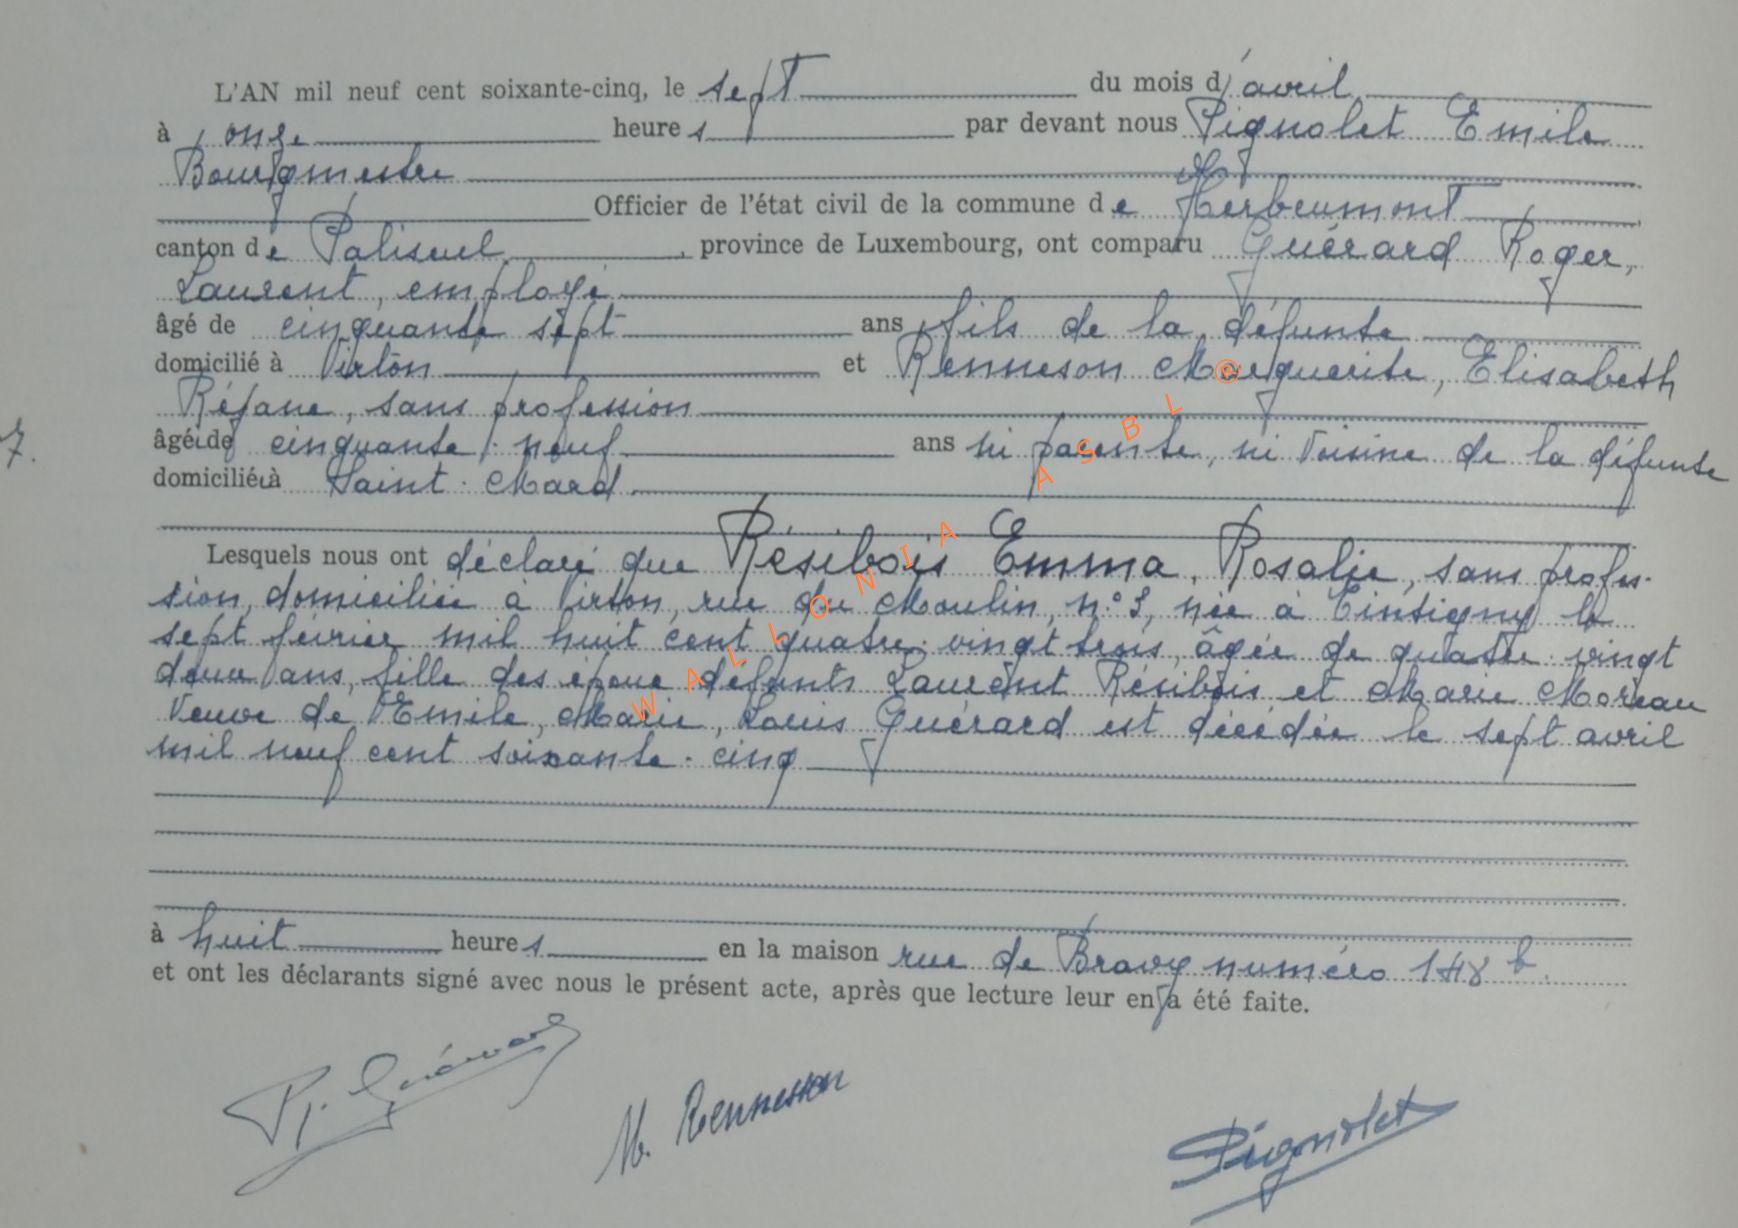 L'AN mil neuf cent soixante-cinq, le sept du mois d'avril
à onze heures par devant nous Pignolet Emile
Bourgmestre
Officier de l'état civil de la commune de Herbeumont
canton de Paliseul, province de Luxembourg, ont comparu Guérard Roger,
Laurent, employé
âgé de cinquante sept ans fils de la défunte
domicilié à Virton et Renneson Marguerite, Elisabeth
Réjane, sans profession
7.
âgée de cinquante-neuf ans ni parente, ni voisine de la défunte
domiciliée à Saint-Mard
Lesquels nous ont déclaré que Résibois Emma, Rosalie, sans profes-
sion, domiciliée à Virton, rue du Moulin, n°3, née à Tintigny le
sept février mil huit cent quatre-vingt trois, âgée de quatre-vingt
deux ans, fille des époux défunts Laurent Résibois et Marie Moreau
Veuve de Emile, Marie, Louis Guérard est décédée le sept avril
mil neuf cent soixante-cinq
à huit heures en la maison rue de Bravy numéro 148 b.
et ont les déclarants signé avec nous le présent acte, après que lecture leur en a été faite.
R. Guérard
M. Rennesson
Pignolet
WALLONIA ASBL ®